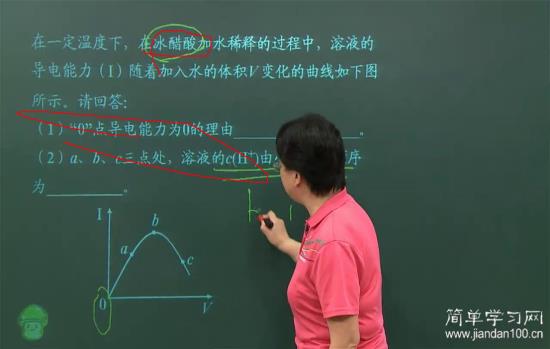 在一定温度下，在冰醋酸加水稀释的过程中，溶液的
导电能力（I）随着加入水的体积V变化的曲线如下图
所示。请回答：
（1）“0”点导电能力为0的理由__________。
（2）a、b、c三点处，溶液的c(H⁺)由 序
为________。
I
b
a
c
0
V
简单学习网
www.jiandan100.cn